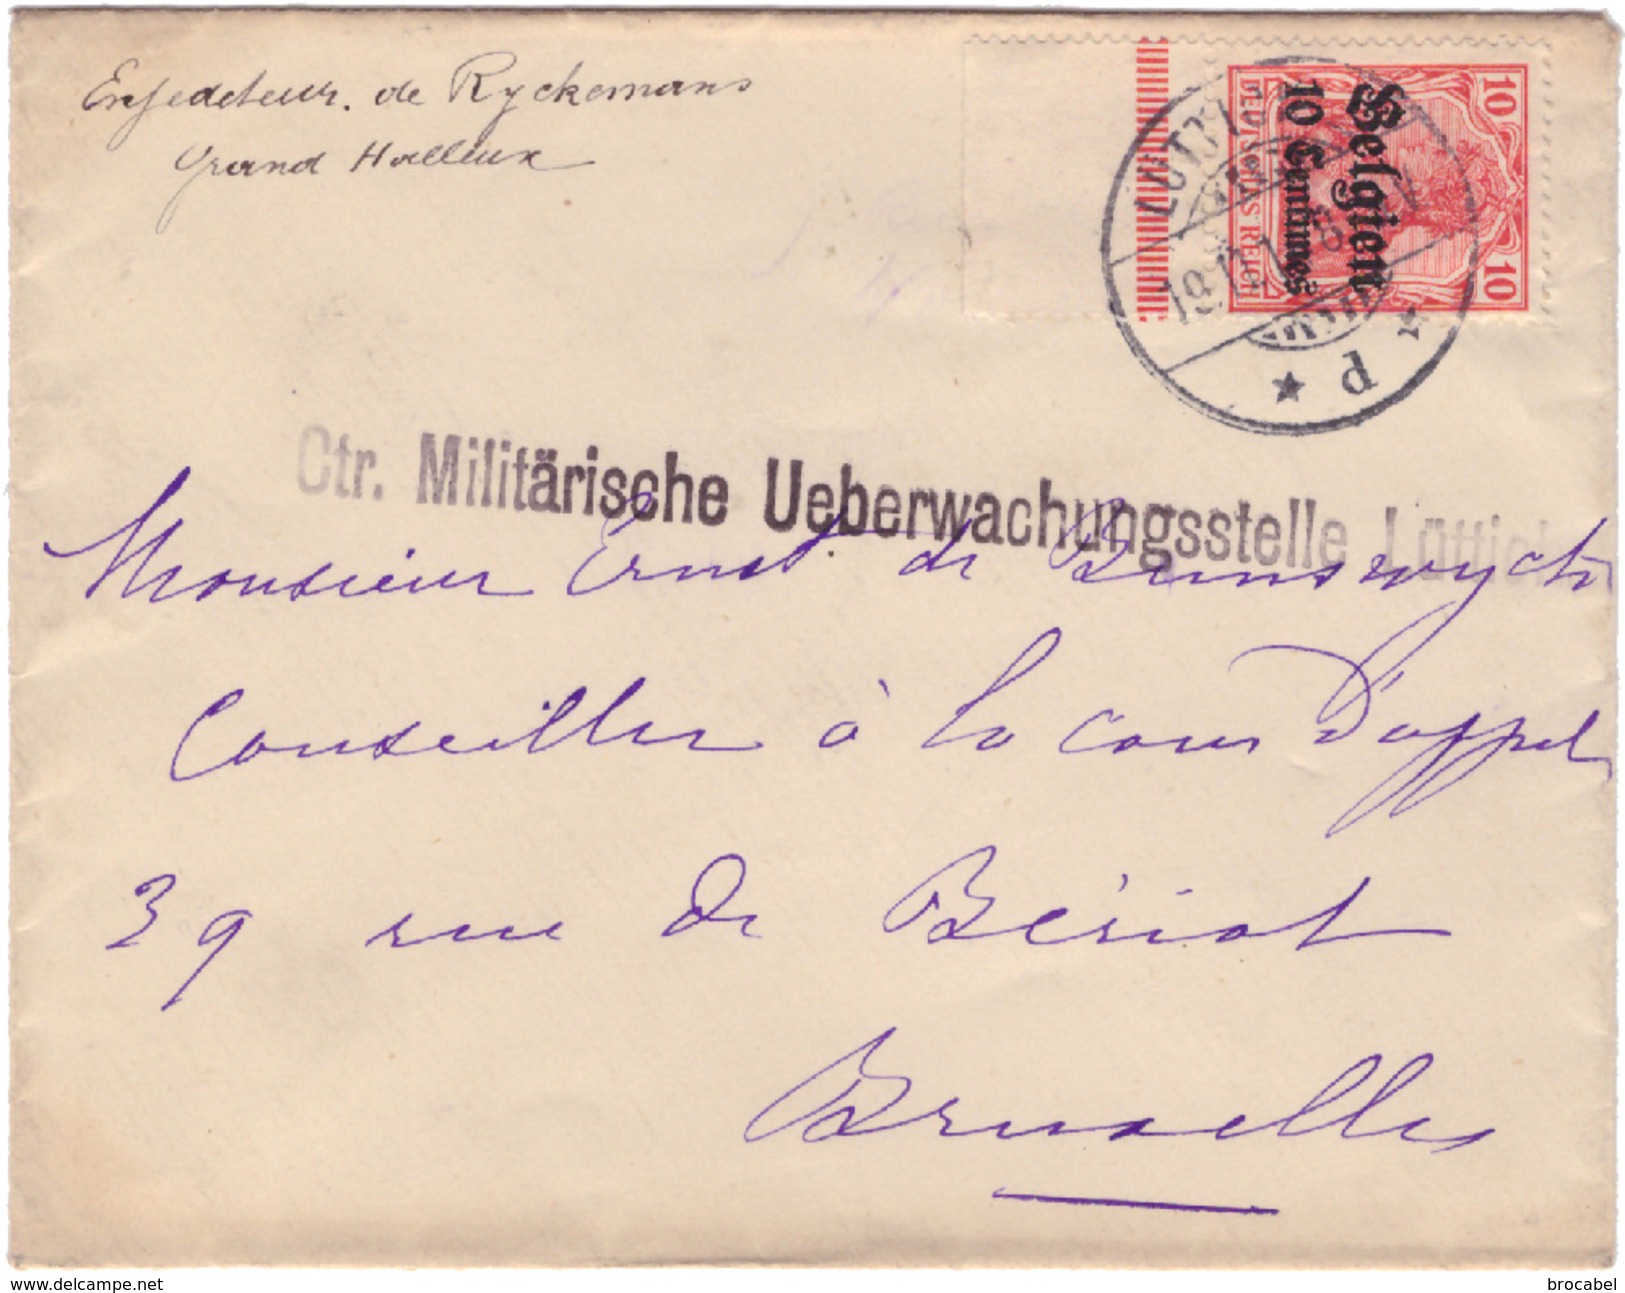 Expediteur. de Ryckemans
Grand Halleux
10 10
DEUTSCHES REICH
Belgien
10 Centimes
LÜTTICH
19.11.
p
Ctr. Militärische Ueberwachungsstelle Lüttich
Monsieur Ernst de Bunswyck
Conseiller à la cour d'appel
39 rue de Bériot
Bruxelles
www.delcampe.net
brocabel